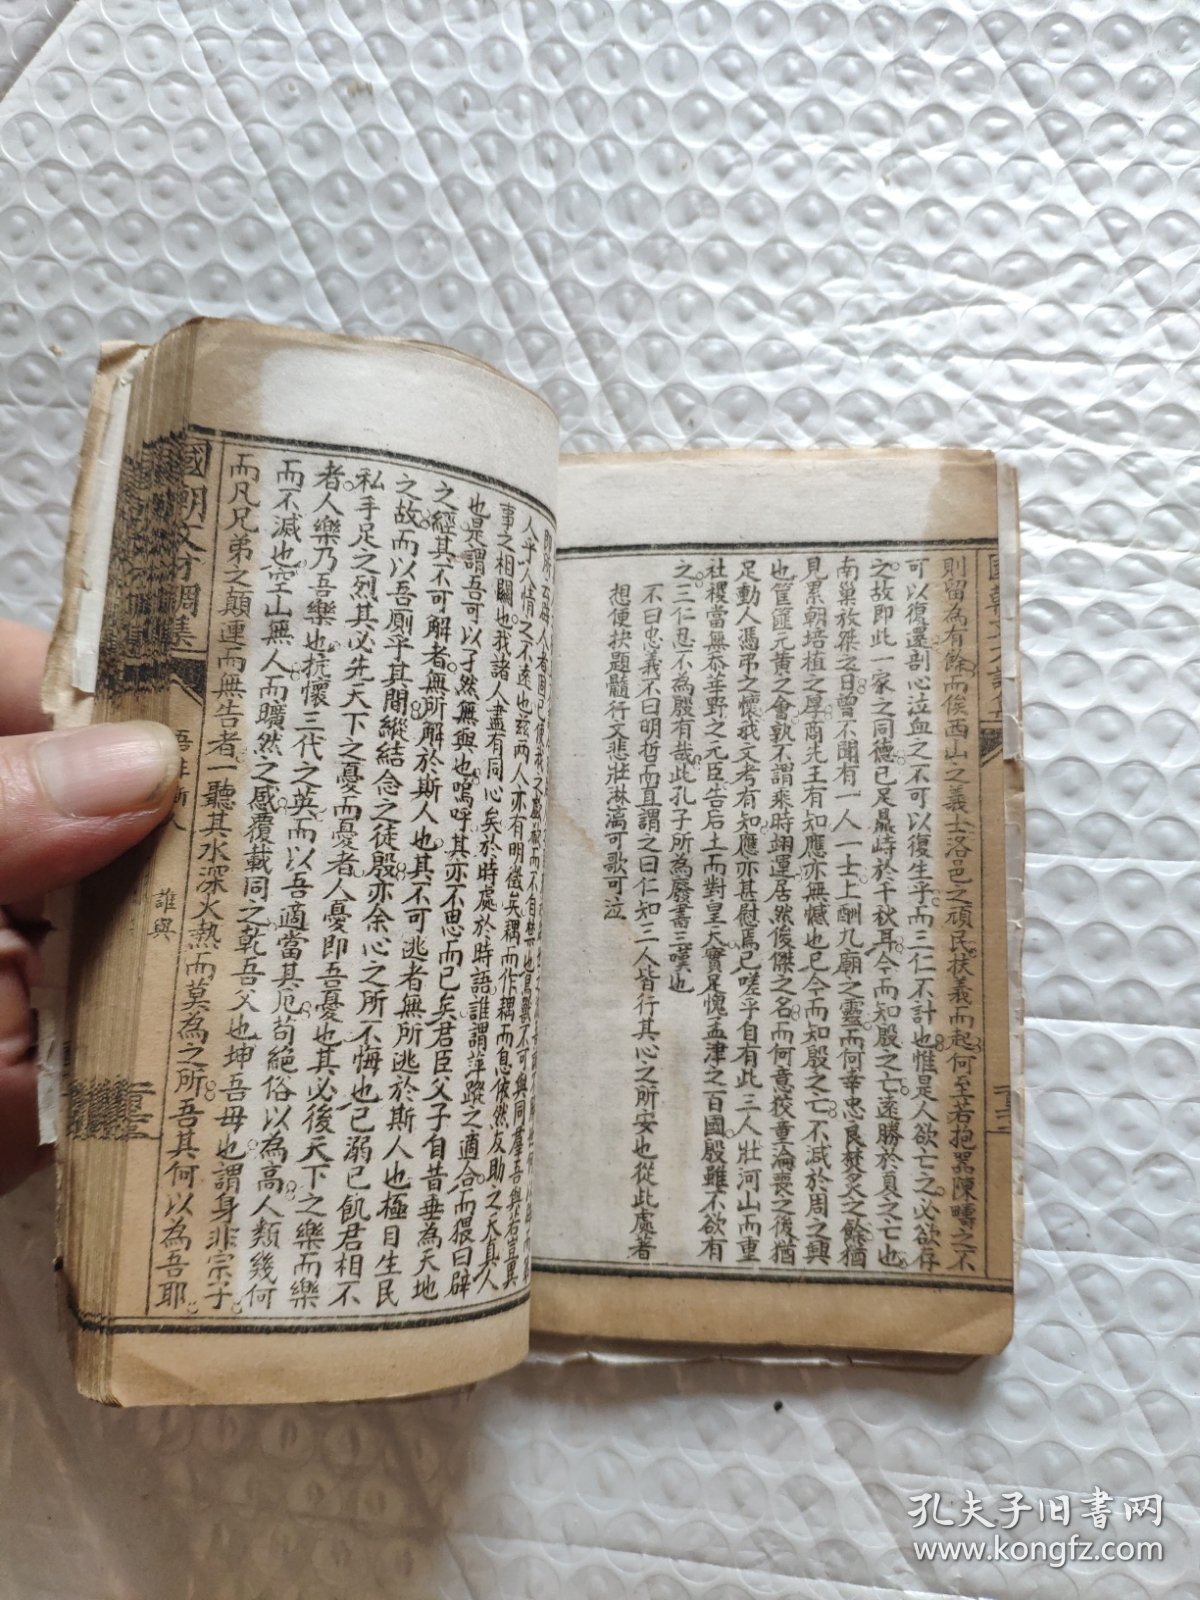 則留為有餘而俟西山之義士洛邑之頑民扶義而起何至若抱器陳疇之不
可以復還剖心泣血之不可以復生乎而三仁不計也惟是人欲亡之必欲存
之故即此一家之同德已足鼎峙於千秋耳今而知殷之亡遠勝於夏之亡也
南巢放桀之日曾不聞有一人一士上酬九廟之靈而何幸忠良焚炙之餘猶
見累朝培植之厚商先王有知應亦無憾也已今而知殷之亡不減於周之興
也篚篚元黄之會孰不謂乘時翊運居然俊傑之名而何意狡童淪喪之後猶
足動人馮弔之懷我文考有知應亦甚慰焉已嗟乎自有此三人壯河山而重
社稷當無忝華野之元臣告后土而對皇天實足愧孟津之百國殷雖不欲有
之三仁忍不為殷有哉此孔子所為廢書三嘆也
不曰忠義不曰明哲而直謂之曰仁知三人皆行其心之所安也從此處著
想便抉題髓行文悲壯淋漓可歌可泣
人乎人情之不遠也茲兩人亦有明徵矣耦而作耦而息依然友助之天真人
事之相關也我諸人盡有同心矣於時處於時語誰謂萍蹤之適合而猥曰辟
也是謂吾可以孑然無與也嗚呼其亦不思而已矣君臣父子自昔垂為天地
之經其不可解者無所解於斯人也其不可逃者無所逃於斯人也極目生民
之故而以吾厠乎其間縱結念之徒殷亦余心之所不悔也已溺已飢君相不
私手足之烈其必先天下之憂而憂者人憂即吾憂也其必後天下之樂而樂
者人樂乃吾樂也抗懷三代之英而以吾適當其厄苟絕俗以為高人類幾何
而不滅也空山無人而曠然之感覆載同之乾吾父也坤吾母也謂身非宗子
而凡兄弟之顛連而無告者一聽其水深火熱而莫為之所吾其何以為吾耶
國朝文才調集
吾非斯人
誰與
孔夫子旧书网
www.kongfz.com